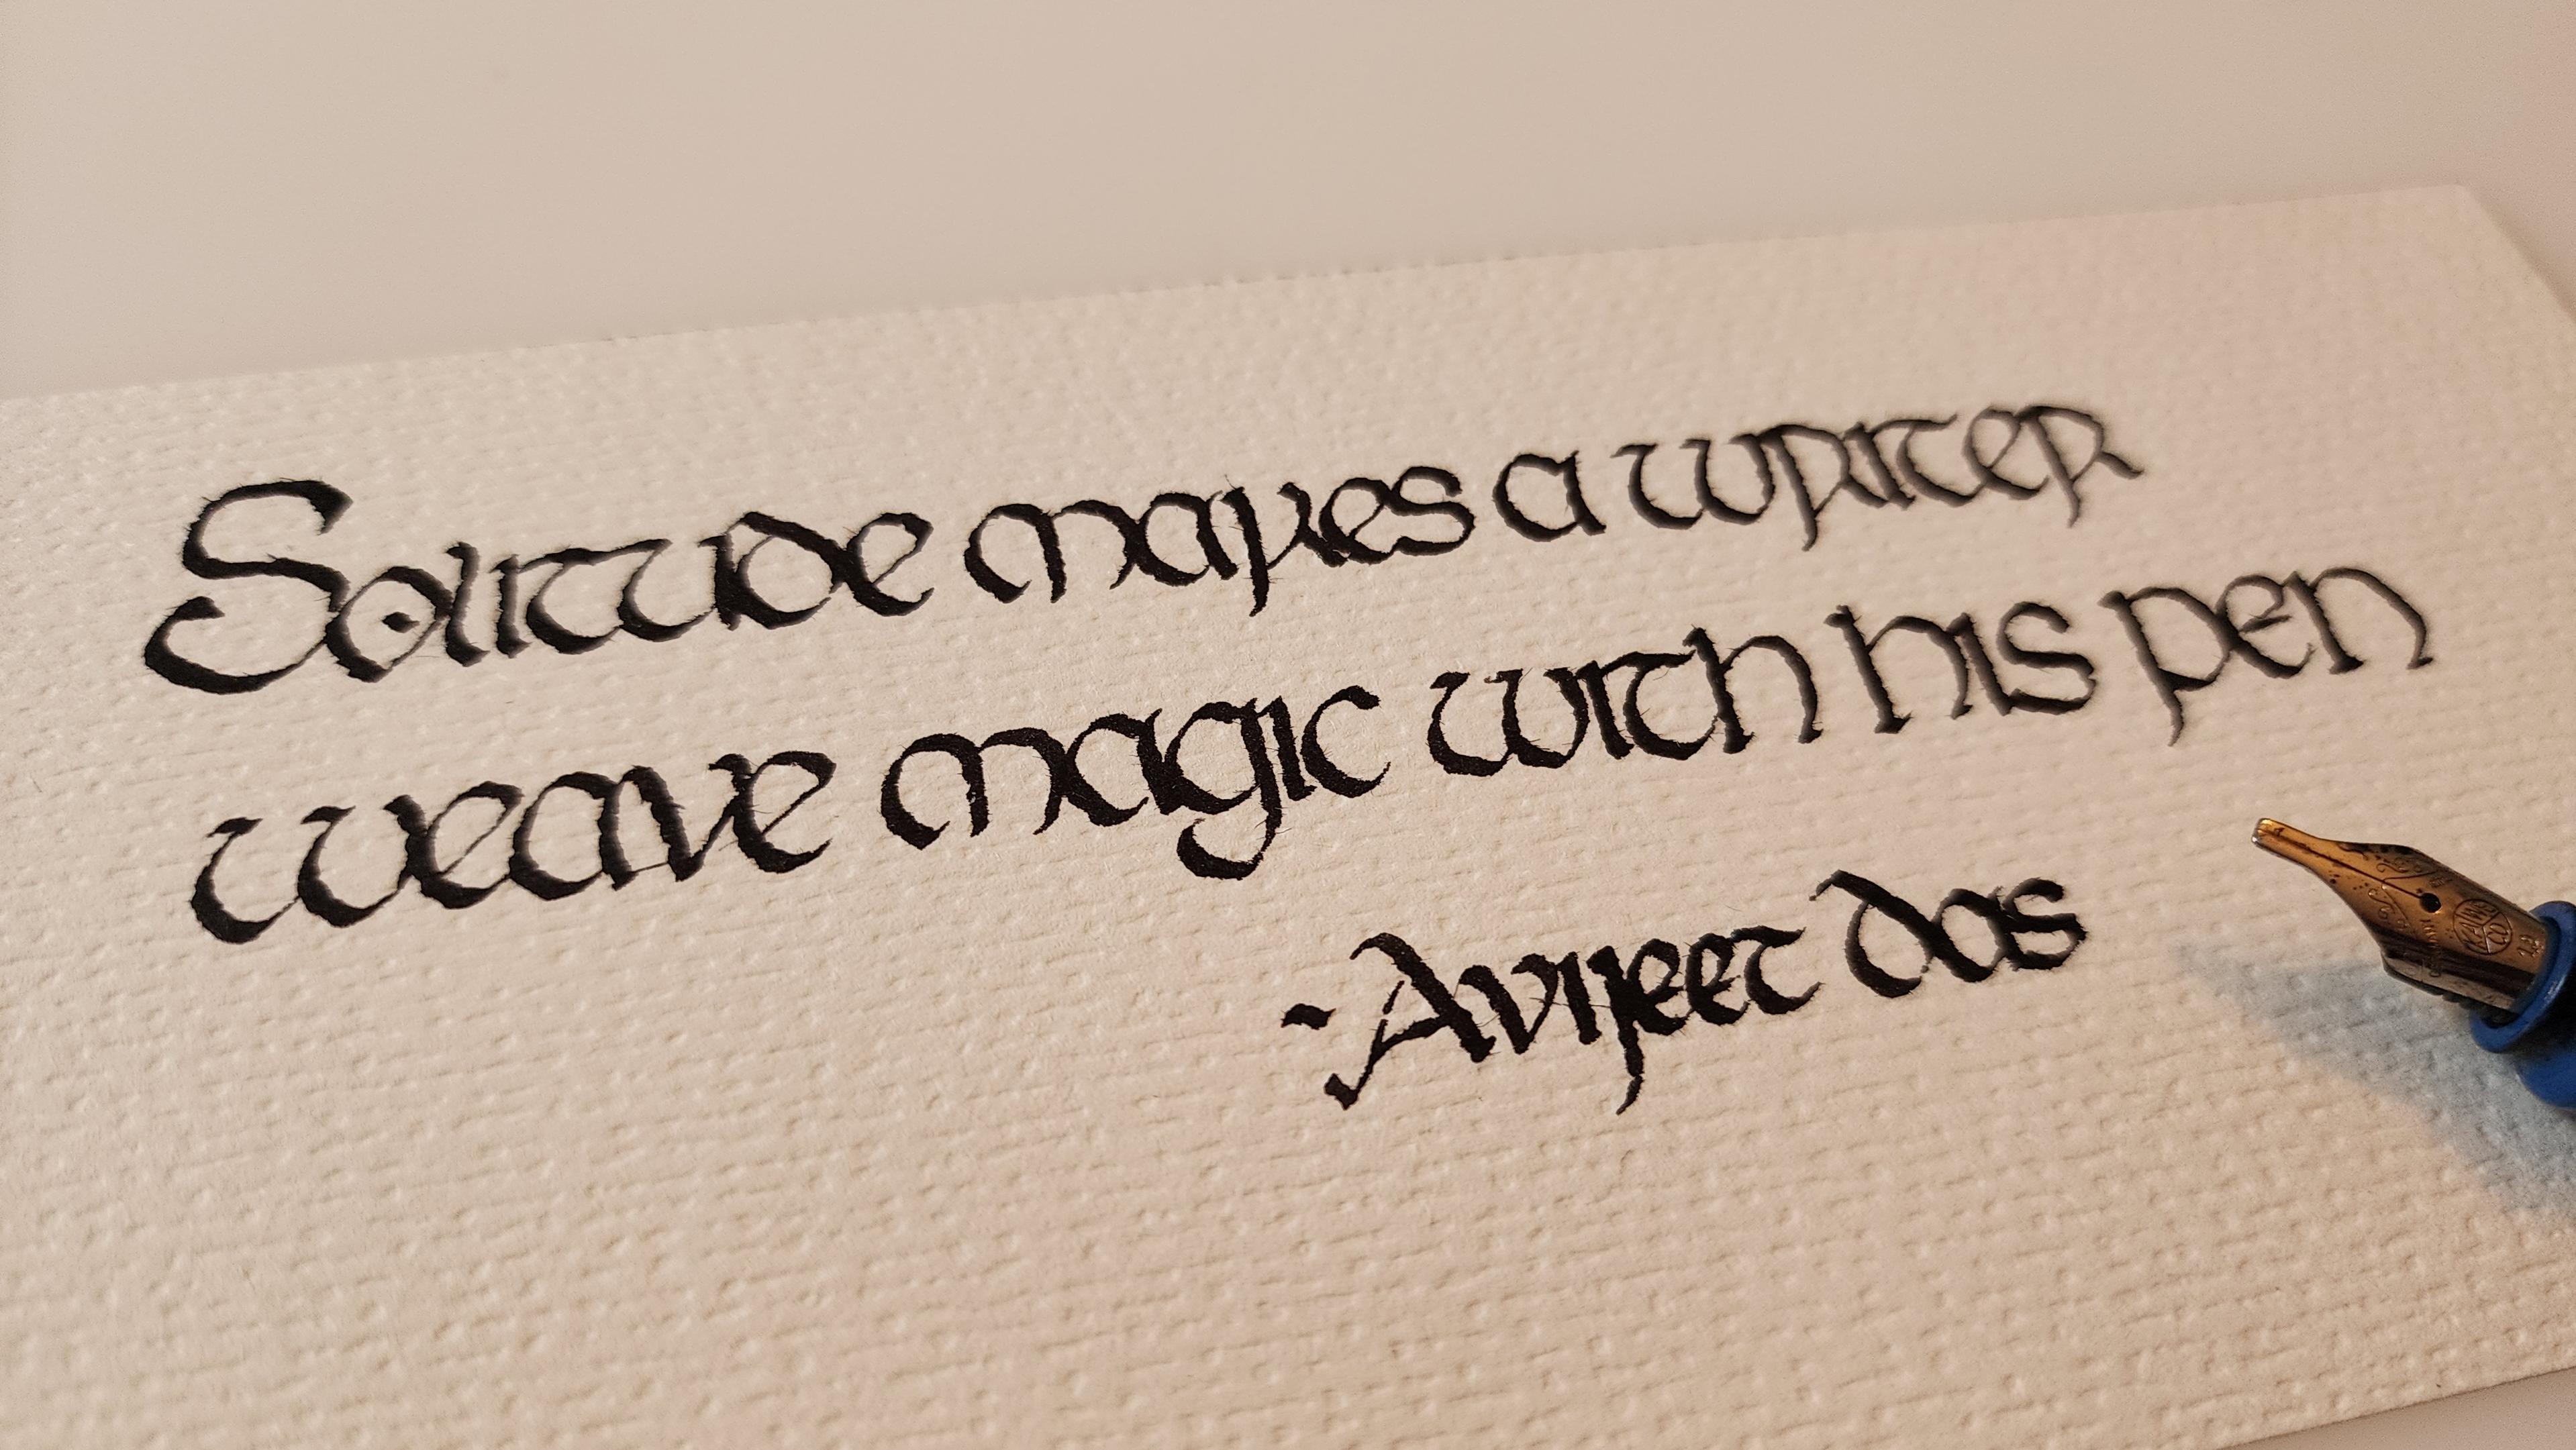 Solitude makes a writer
weave magic with his pen
-Avijeet das
KAWECO